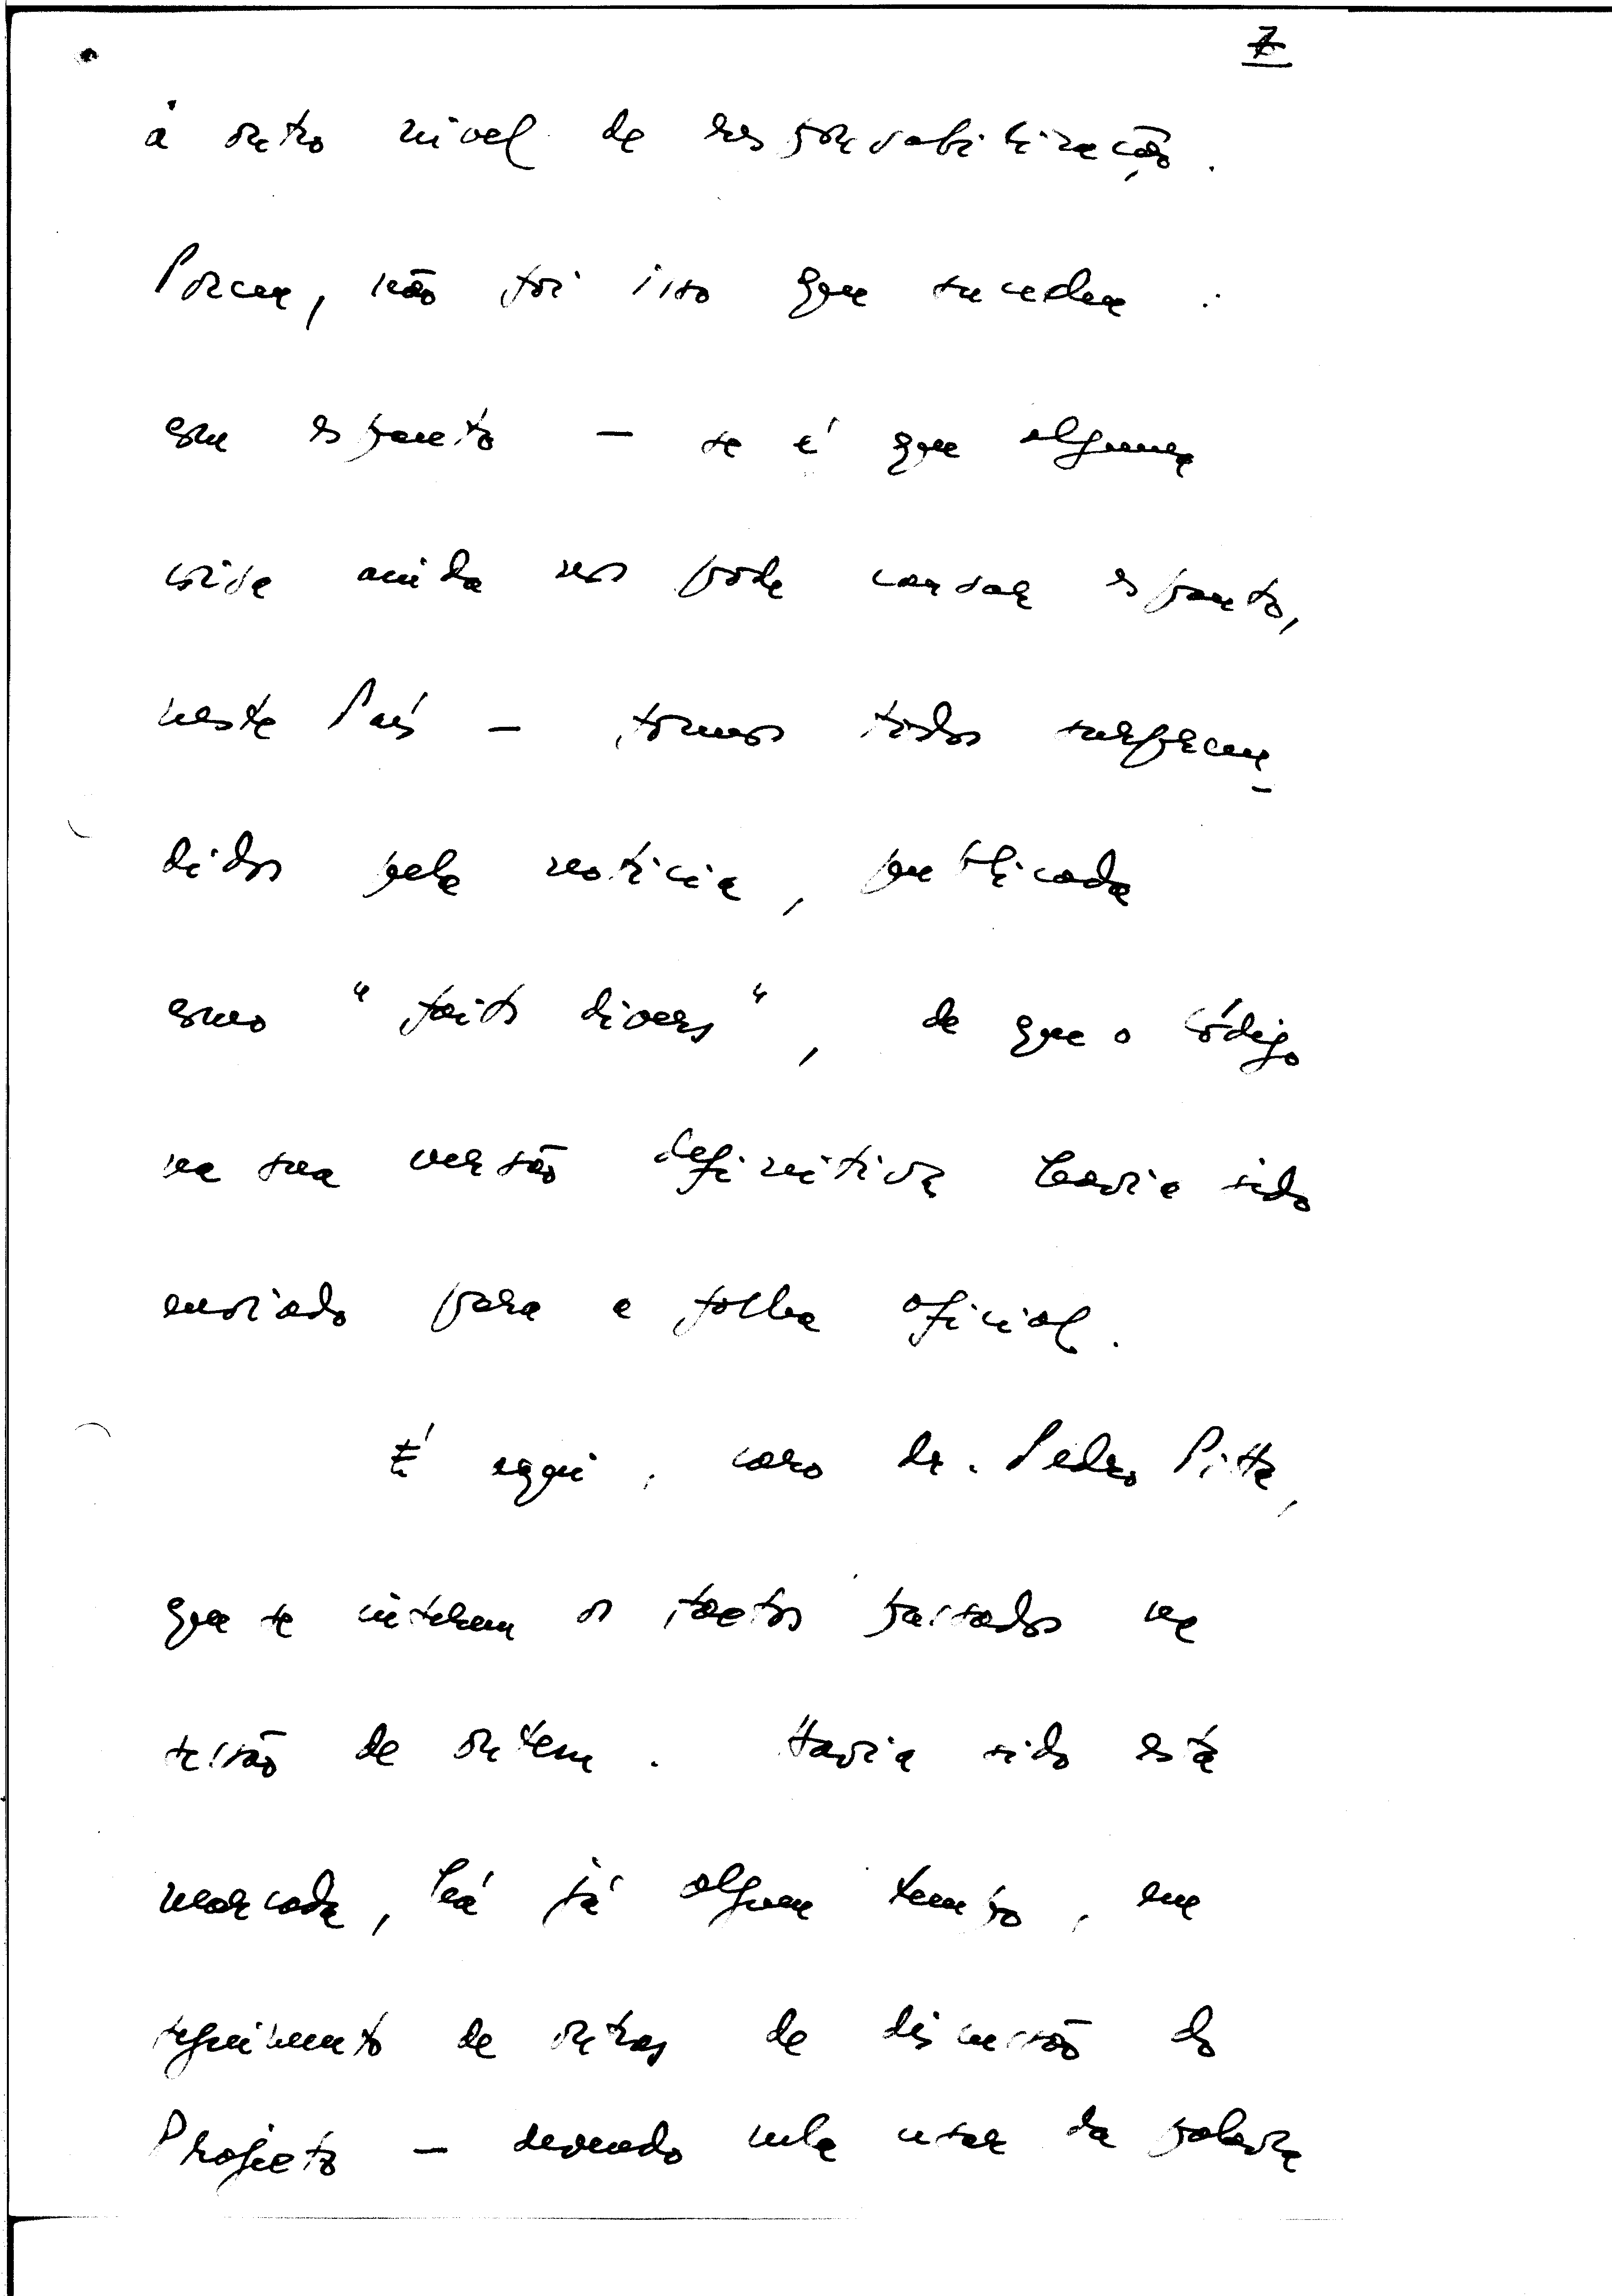 7
a outro nível de responsabilização.
Porém, não foi isso que sucedeu:
com espanto — se é que alguma
coisa ainda nos pode causar espanto,
neste País — fomos todos surpreen-
didos pela notícia, publicada
como "faits divers", de que o Código
na sua versão definitiva havia sido
enviado para a folha oficial.
É aqui, caro dr. Pedro Pitta,
que se inserem os factos passados na
sessão de ontem. Havia sido esta
marcada, há já algum tempo, em
seguimento de outras de discussão do
Projecto — devendo nela usar da palavra